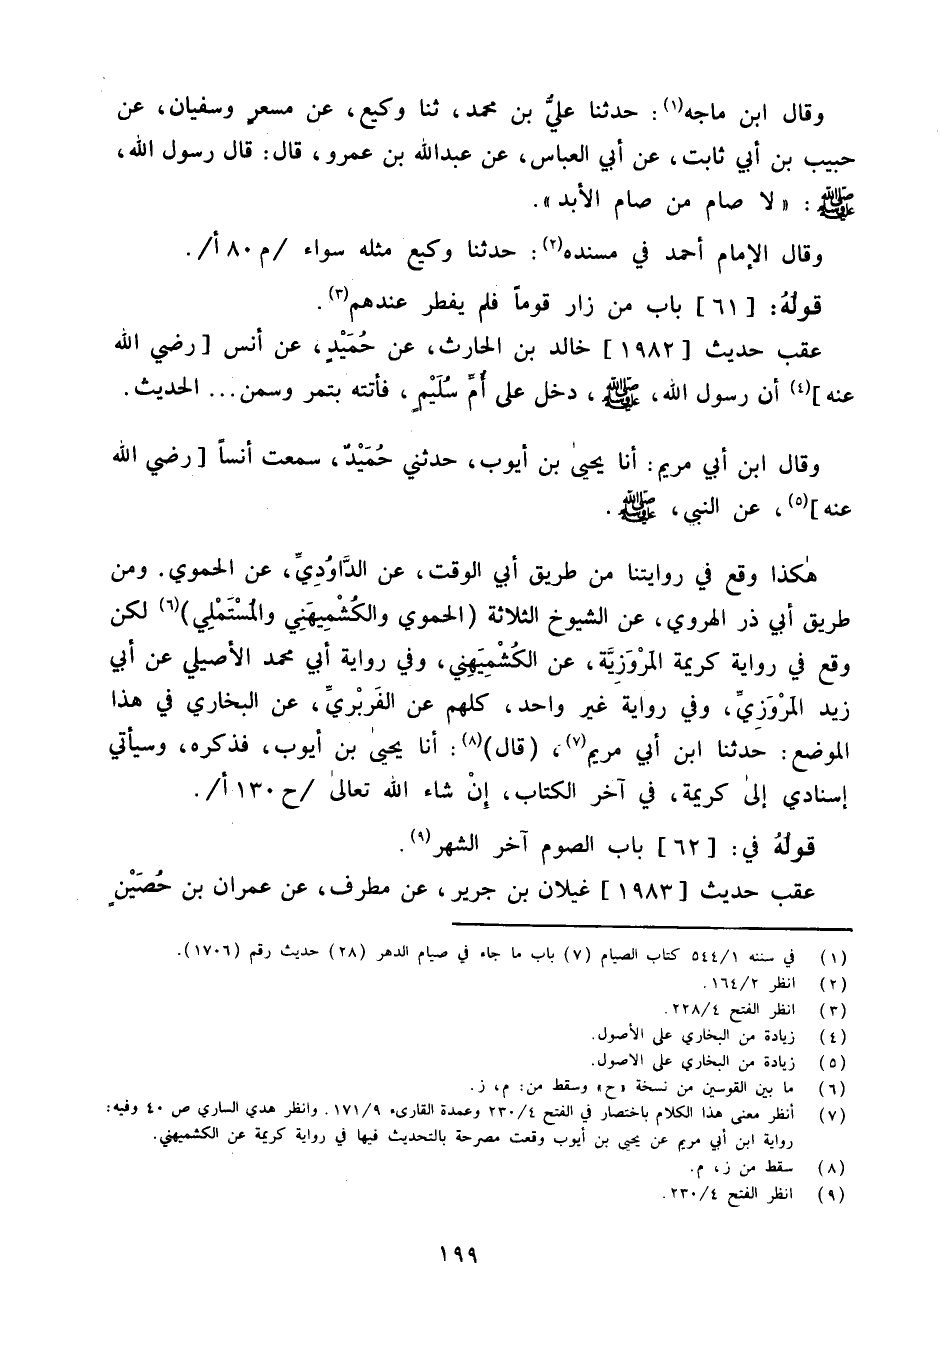 وقال ابن ماجه(١): حدثنا عليُّ بن محمد، ثنا وكيع، عن مسعرٍ وسفيان، عن
حبيب بن أبي ثابت، عن أبي العباس، عن عبدالله بن عمرو، قال: قال رسول الله،
ﷺ: «لا صام من صام الأبد».
وقال الإمام أحمد في مسنده(٢): حدثنا وكيع مثله سواء /م ٨٠ أ/.
قولُهُ: [٦١] باب من زار قوماً فلم يفطر عندهم(٣).
عقب حديث [١٩٨٢] خالد بن الحارث، عن حُمَيْدٍ، عن أنس [رضي الله
عنه](٤) أن رسول الله، ﷺ، دخل على أُمِّ سُلَيْمٍ، فأتته بتمر وسمن... الحديث.
وقال ابن أبي مريم: أنا يحيىٰ بن أيوب، حدثني حُمَيْدٌ، سمعت أنساً [رضي الله
عنه](٥)، عن النبي، ﷺ.
هٰكذا وقع في روايتنا من طريق أبي الوقت، عن الدَّاوُدِيِّ، عن الحموي. ومن
طريق أبي ذر الهروي، عن الشيوخ الثلاثة (الحموي والكُشْمِيهَني والمُسْتَمْلِي)(٦) لكن
وقع في رواية كريمة المَرْوَزِيَّة، عن الكُشْمِيَهِني، وفي رواية أبي محمد الأصيلي عن أبي
زيد المَرْوَزِيِّ، وفي رواية غير واحد، كلهم عن الفَرَبْرِيِّ، عن البخاري في هذا
الموضع: حدثنا ابن أبي مريم(٧)، (قال)(٨): أنا يحيىٰ بن أيوب، فذكره، وسيأتي
إسنادي إلىٰ كريمة، في آخر الكتاب، إنْ شاء الله تعالىٰ /ح ١٣٠ أ/.
قولُهُ في: [٦٢] باب الصوم آخر الشهر(٩).
عقب حديث [١٩٨٣] غيلان بن جرير، عن مطرف، عن عمران بن حُصَيْنٍ
(١) في سننه ٥٤٤/١ كتاب الصيام (٧) باب ما جاء في صيام الدهر (٢٨) حديث رقم (١٧٠٦).
(٢) انظر ١٦٤/٢.
(٣) انظر الفتح ٢٢٨/٤.
(٤) زيادة من البخاري على الأصول.
(٥) زيادة من البخاري على الاصول.
(٦) ما بين القوسين من نسخة «ح» وسقط من: م، ز.
(٧) أنظر معنى هذا الكلام باختصار في الفتح ٢٣٠/٤ وعمدة القارىء ١٧١/٩. وانظر هدي الساري ص ٤٠ وفيه:
رواية ابن أبي مريم عن يحيى بن أيوب وقعت مصرحة بالتحديث فيها في رواية كريمة عن الكشميهني.
(٨) سقط من ز، م.
(٩) انظر الفتح ٢٣٠/٤.
١٩٩